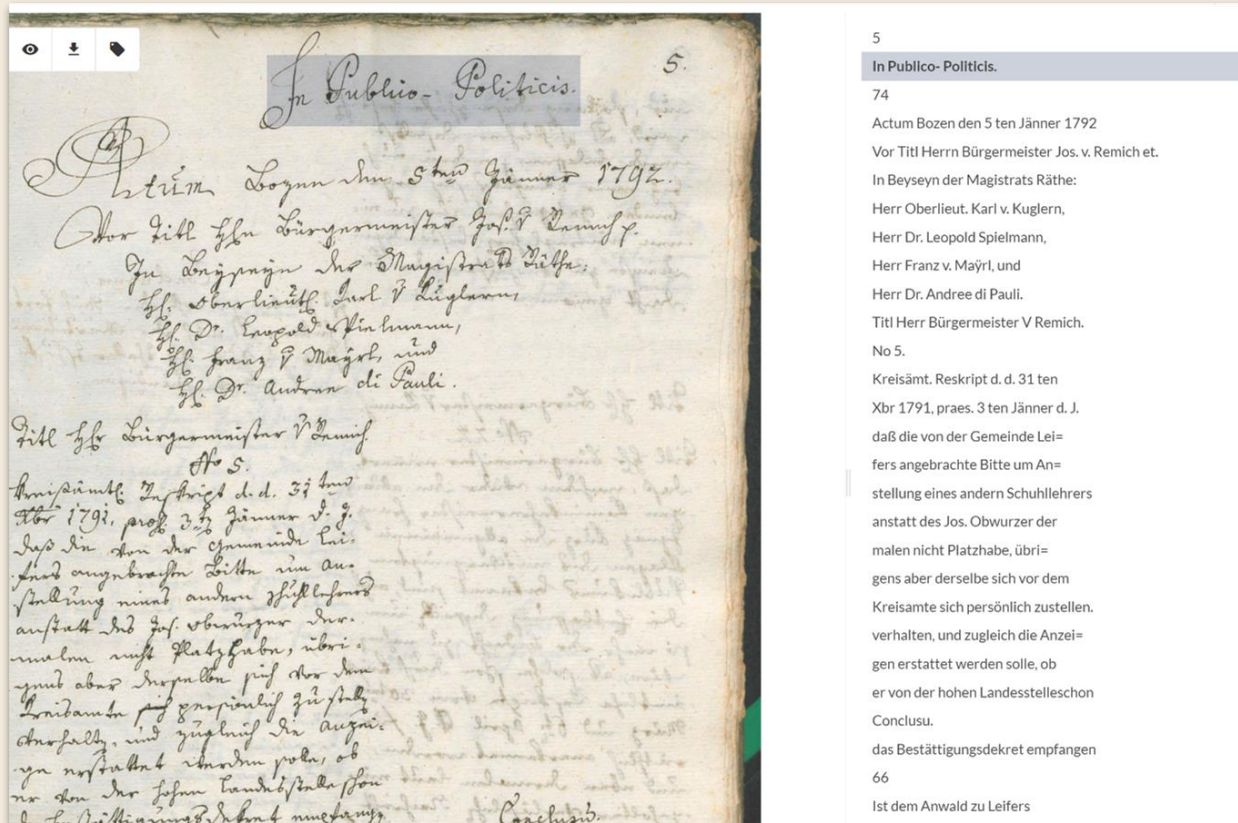 5.
In Publico- Politicis.
Actum Bozen den 5ten Jänner 1792.
Vor Titl H̄n Bürgermeister Jos. v Remich p.
In Beyseyn der Magistrats Räthe:
H. Oberlieut. Karl v Kuglern,
H. Dr. Leopold Spielmann,
H. Franz v Mayrl, und
H. Dr. Andree di Pauli.
Titl Hr Bürgermeister V Remich
No 5.
Kreisämtl. Reskript d. d. 31ten
Xbr 1791, praes. 3t Jänner d. J.
daß die von der Gemeinde Lei=
fers angebrachte Bitte um An=
stellung eines andern Schullehrers
anstatt des Jos. Obwurzer der=
malen nicht Platzhabe, übri=
gens aber derselbe sich vor dem
Kreisamte sich persönlich zustelln
verhaltn, und zugleich die Anzei=
ge erstattet werden solle, ob
er von der hohen Landesstelle schon
das Bestättigungsdekret empfangn
Conclusu.
5
In Publico- Politicis.
74
Actum Bozen den 5 ten Jänner 1792
Vor Titl Herrn Bürgermeister Jos. v. Remich et.
In Beyseyn der Magistrats Räthe:
Herr Oberlieut. Karl v. Kuglern,
Herr Dr. Leopold Spielmann,
Herr Franz v. Maÿrl, und
Herr Dr. Andree di Pauli.
Titl Herr Bürgermeister V Remich.
No 5.
Kreisämt. Reskript d. d. 31 ten
Xbr 1791, praes. 3 ten Jänner d. J.
daß die von der Gemeinde Lei=
fers angebrachte Bitte um An=
stellung eines andern Schuhllehrers
anstatt des Jos. Obwurzer der
malen nicht Platzhabe, übri=
gens aber derselbe sich vor dem
Kreisamte sich persönlich zustellen.
verhalten, und zugleich die Anzei=
gen erstattet werden solle, ob
er von der hohen Landesstelleschon
Conclusu.
das Bestättigungsdekret empfangen
66
Ist dem Anwald zu Leifers